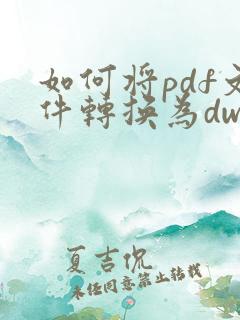 如何将pdf文
件轉换為dw
夏吉侃
未经同意禁止转载